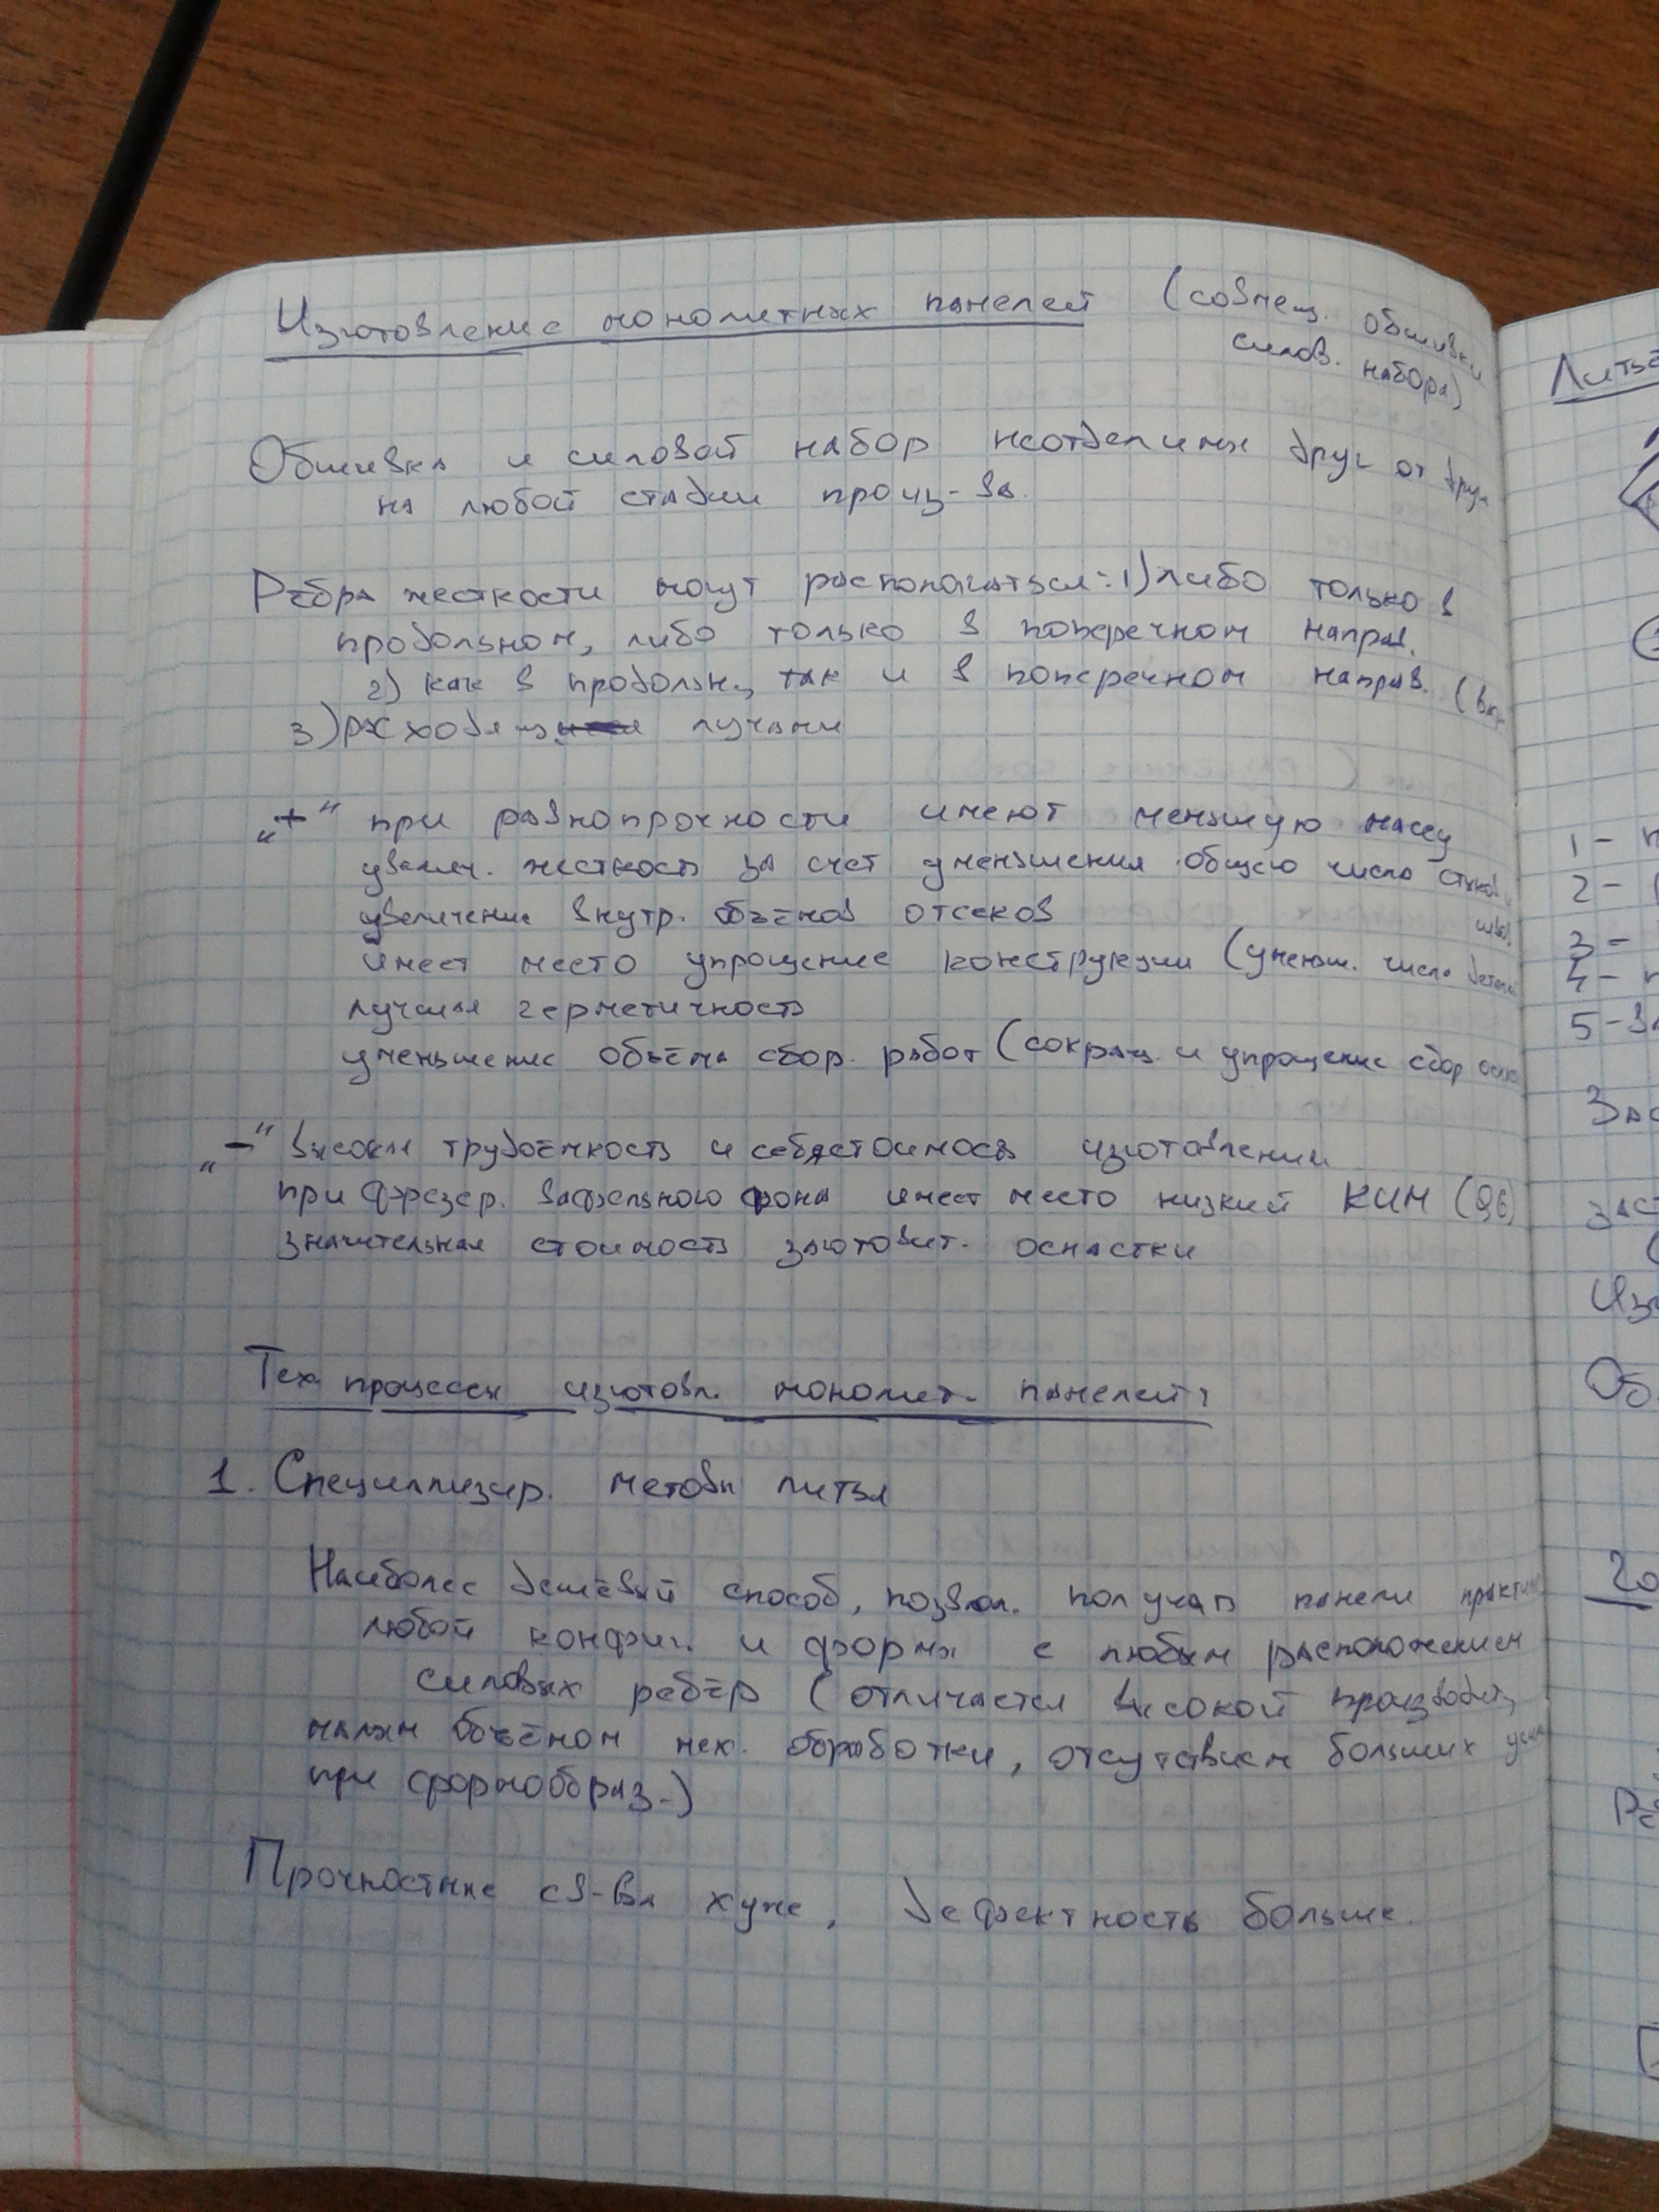 Изготовление монолитных панелей (совмещ. обшивки
силов. набора)
Обшивка и силовой набор неотделимы друг от друга
на любой стадии произ-ва.
Рёбра жесткости могут располагаться: 1) либо только в
продольном, либо только в поперечном направ.
2) как в продольн, так и в поперечном направ.
3) расходящ лучами
„+“ при равнопрочности имеют меньшую массу
увелич. жесткость за счет уменьшения общего число стыков и
швов
увеличение внутр. объёмов отсеков
имеет место упрощение конструкции (уменьш. число деталей
лучшая герметичность
уменьшение объёма сбор. работ (сокращ. и упрощение сбор
„–“ высокая трудоёмкость и себястоимость изготовления
при фрезер. вафельного фона имеет место низкий КИМ (0,6)
значительная стоимость заготовит. оснастки
Тех процессы изготовл. монолит. панелей:
1. Специализир. методы литья
Наиболее дешёвый способ, позвол. получать панели практич
любой конфиг. и формы с любым расположением
силовых рёбер (отличается высокой производит,
малым объёмом мех. обработки, отсутствием больших усил
при формообраз.)
Прочностные св-ва хуже, дефектность больше.
Литьё
1 –
2 –
3 –
4 –
5 –